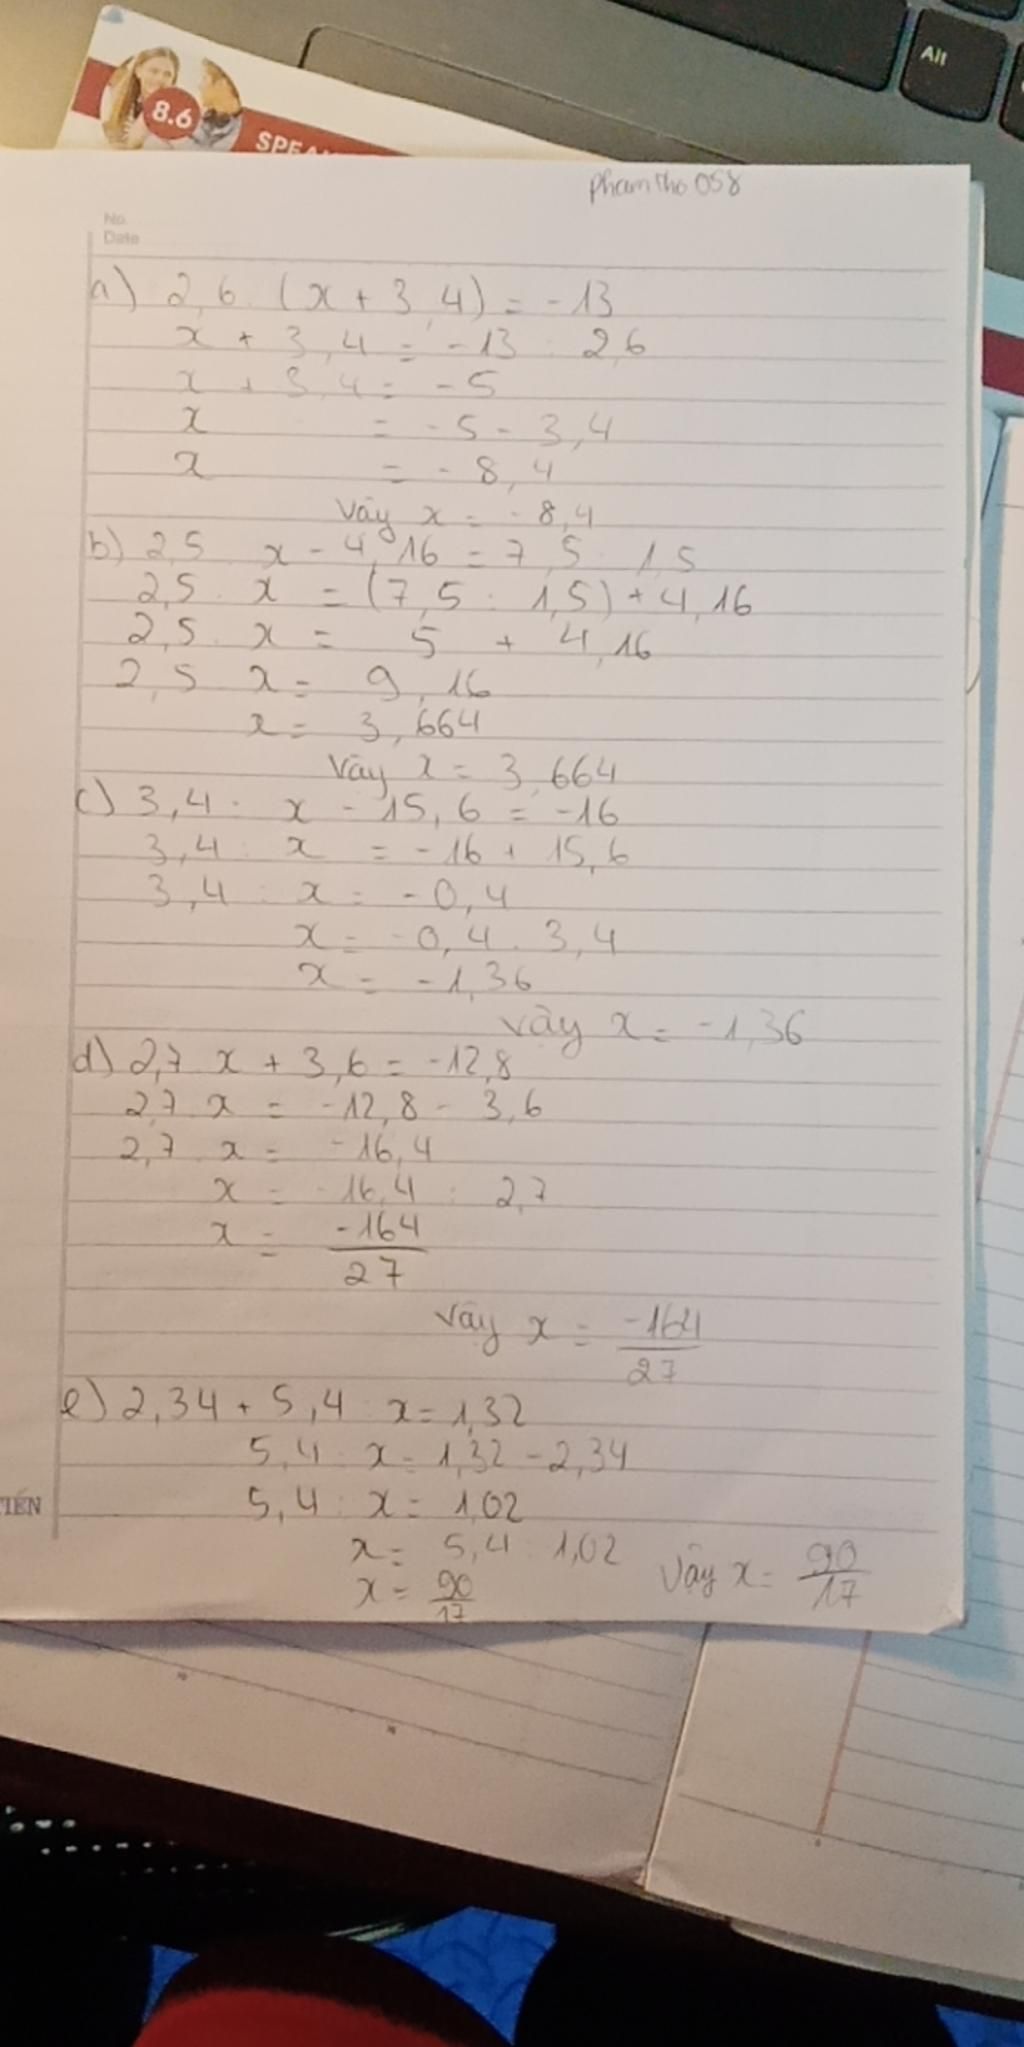 Alt
8.6
SPEA
phamtho058
No.
Date
a) 2,6 . (x + 3,4) = -13
x + 3,4 = -13 : 2,6
x + 3,4 = -5
x = -5 - 3,4
x = -8,4
Vậy x = -8,4
b) 2,5 . x - 4,16 = 7,5 : 1,5
2,5 . x = (7,5 : 1,5) + 4,16
2,5 . x = 5 + 4,16
2,5 x = 9,16
x = 3,664
Vậy x = 3,664
c) 3,4 : x - 15,6 = -16
3,4 : x = -16 + 15,6
3,4 : x = -0,4
x = -0,4 . 3,4
x = -1,36
Vậy x = -1,36
d) 2,7 . x + 3,6 = -12,8
2,7 . x = -12,8 - 3,6
2,7 . x = -16,4
x = -16,4 : 2,7
x = -164/27
Vậy x = -164/27
e) 2,34 + 5,4 : x = 1,32
5,4 : x = 1,32 - 2,34
5,4 : x = 1,02
TIẾN
x = 5,4 : 1,02
x = 90/17 Vậy x = 90/17